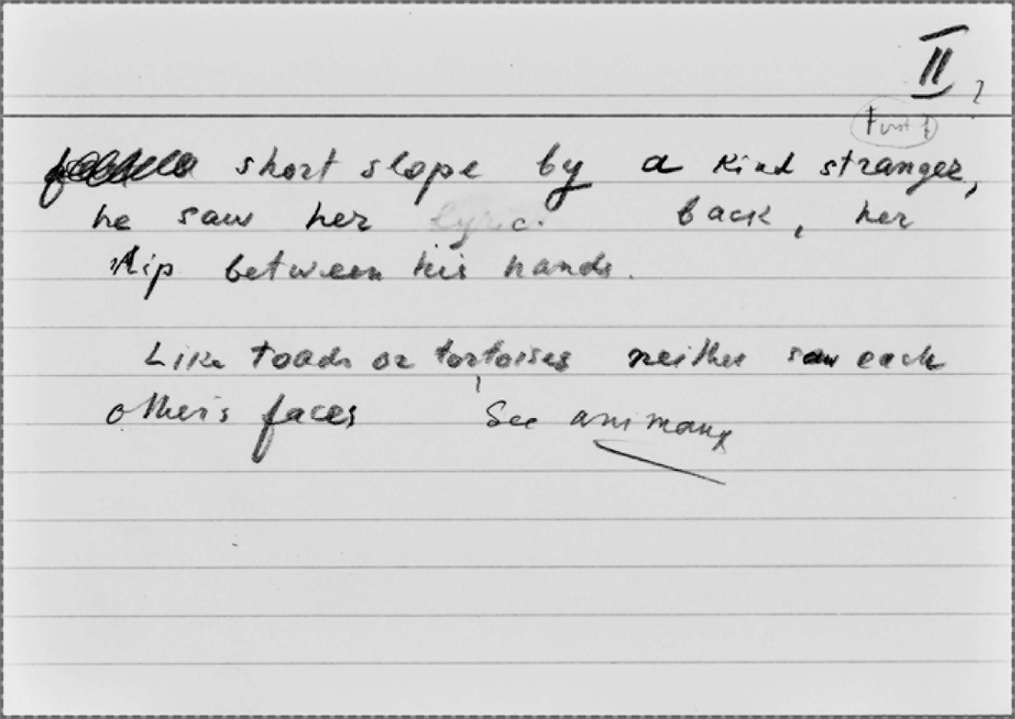 II ?
short slope by a kind stranger,
he saw her back, her
hip between his hands.
Like toads or tortoises neither saw each
other's faces See animaux